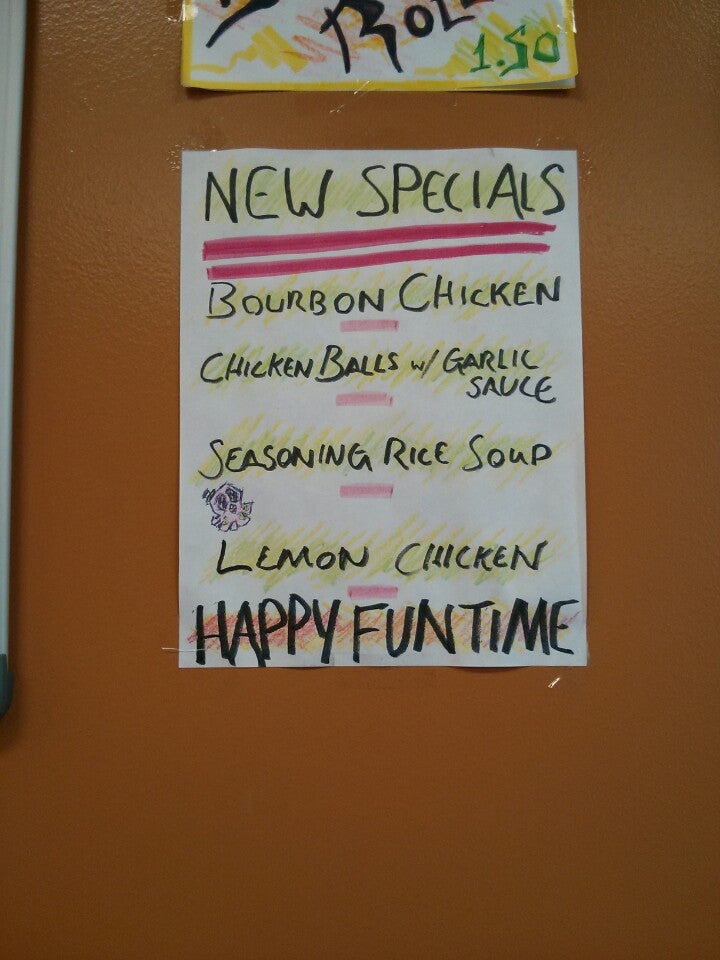 ROLL
1.50
NEW SPECIALS
BOURBON CHICKEN
CHICKEN BALLS w/ GARLIC
SAUCE
SEASONING RICE SOUP
LEMON CHICKEN
HAPPY FUN TIME